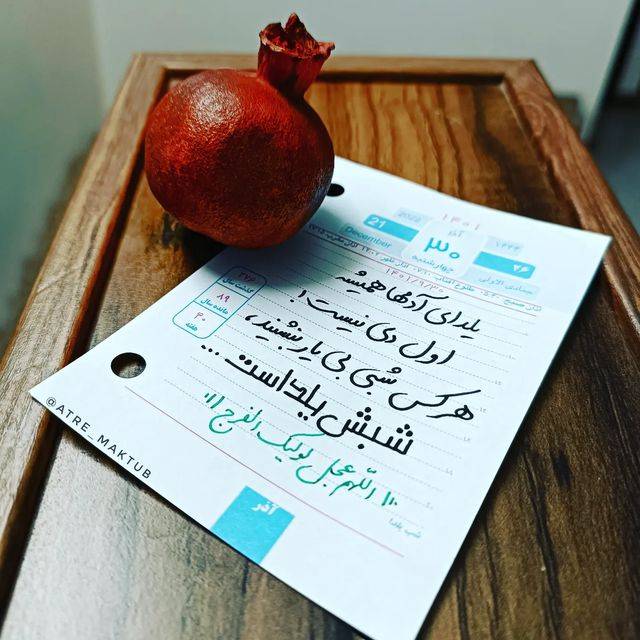 ۱۴۰۱
21 December 2022
آذر ۳۰ چهارشنبه
۱۴۴۴ ۲۶ جمادی الاولی
۱۴۰۱/۹/۳۰
۲۷۶ گذشت سال
۸۹ مانده سال
۴۰ هفته
یلدای آدمها همیشه
اول دی نیست!
هرکس شبی بی یار بنشیند،
شبش یلداست...
"اللهم عجل لولیک الفرج"
شب یلدا
آذر
@ATRE_MAKTUB